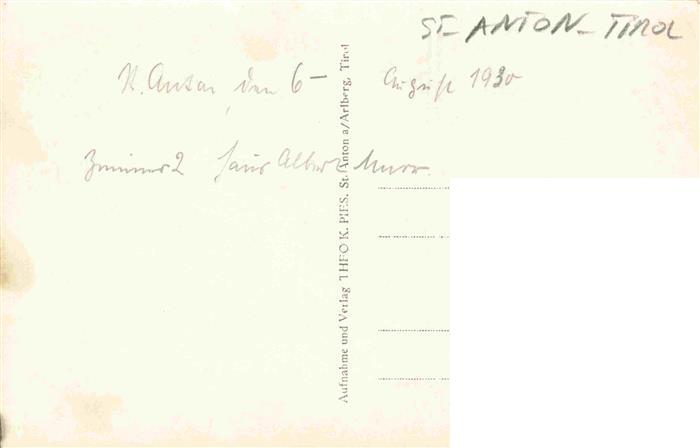 ST- ANTON - TIROL
St. Anton, den 6- August 1930
Zimmer 2 Haus Albert Murr.
Aufnahme und Verlag THEO K. PIES, St. Anton a/Arlberg, Tirol